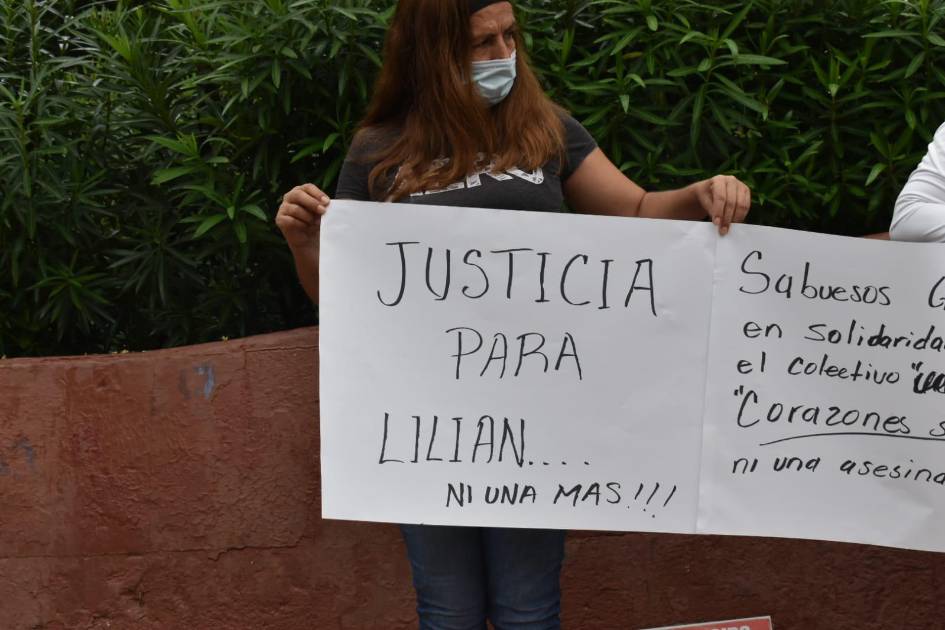 JUSTICIA
PARA
LILIAN....
NI UNA MAS!!!
Sabuesos
en solidarida
el colectivo "
"Corazones s
ni una asesina